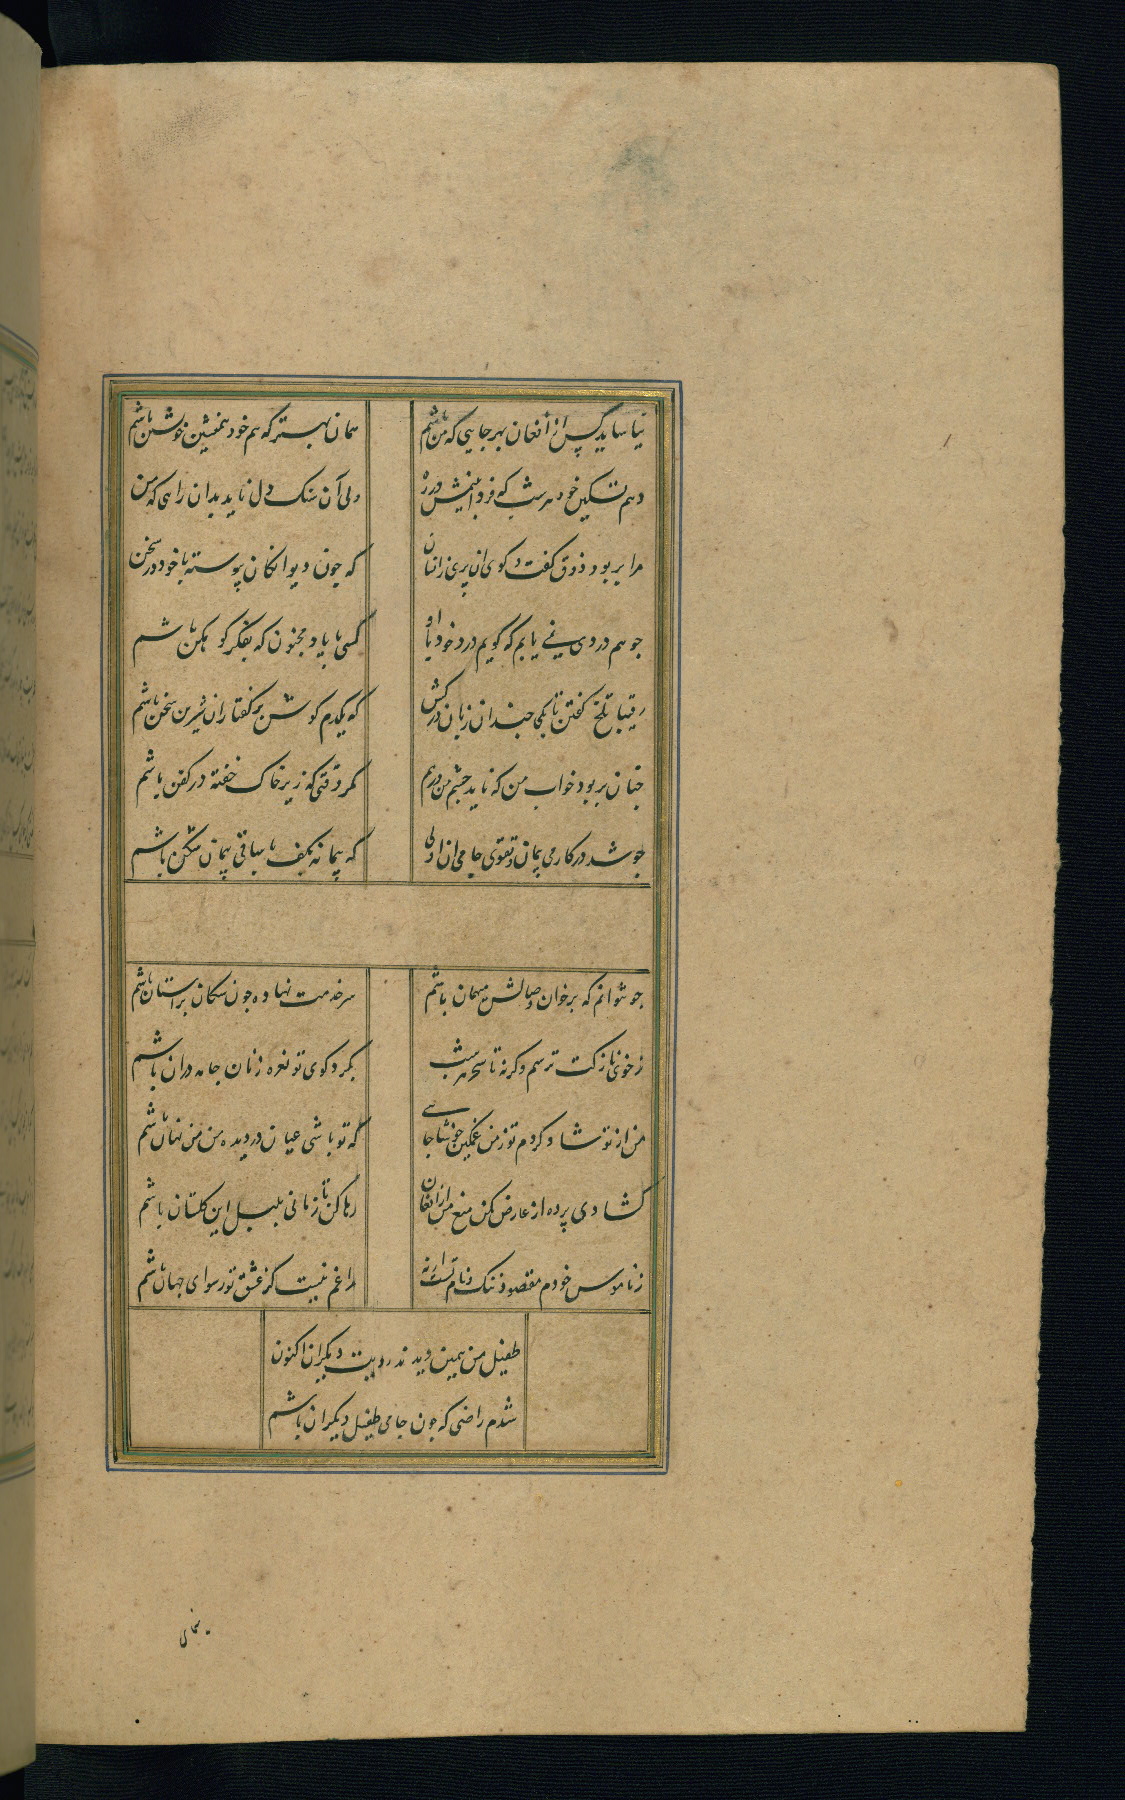 نیاساید کس از افغان بهر جایی که من باشم
همان بهتر که هم خود همنشین خویشتن باشم
دهم تسکین خود هر شب که فردا بینمش در ره
ولی آن سنک دل ناید بدان راهی که من
مرا بربود ذوق گفت و کوی ان پری زانسان
که جون دیوانکان پیوسته با خود در سخن
جو هم دردی نمی یابم که گویم درد خود با او
کهی با یاد مجنون که بفکر کوهکن باشم
رقیبا تلخ کفتن تا بکی جندان زبان درکش
که یکدم کوش بر کفتار ان شیرین سخن باشم
جنان بربود خواب من که ناید جشم من درهم
مکر وقتی که زیر خاک خفته در کفن باشم
جو شد در کار می پیمان و تقوی جامی ان اولی
که پیمانه بکف با ساقی پیمان شکن باشم
جو نتوانم که بر خوان وصالش میهمان باشم
سر خدمت نهاده جون سکان بر استان باشم
ز خوی نازکت ترسم وکرنه تا سحر هر شب
بکرد کوی تو نعره زنان جامه دران باشم
من از تو شاد کردم تو ز من غمکین خوشا جایی
که تو باشی عیان در دیده من من نهان باشم
کشادی پرده از عارض مکن منع من از افغان
رها کن تا زمانی بلبل این کلستان باشم
ز ناموس خودم مقصود ننک و نام تست ارنه
مرا غم نیست کز عشق تو رسوای جهان باشم
طفیل من همین دیدند رویت دیکران اکنون
شدم راضی که جون جامی طفیل دیکران باشم